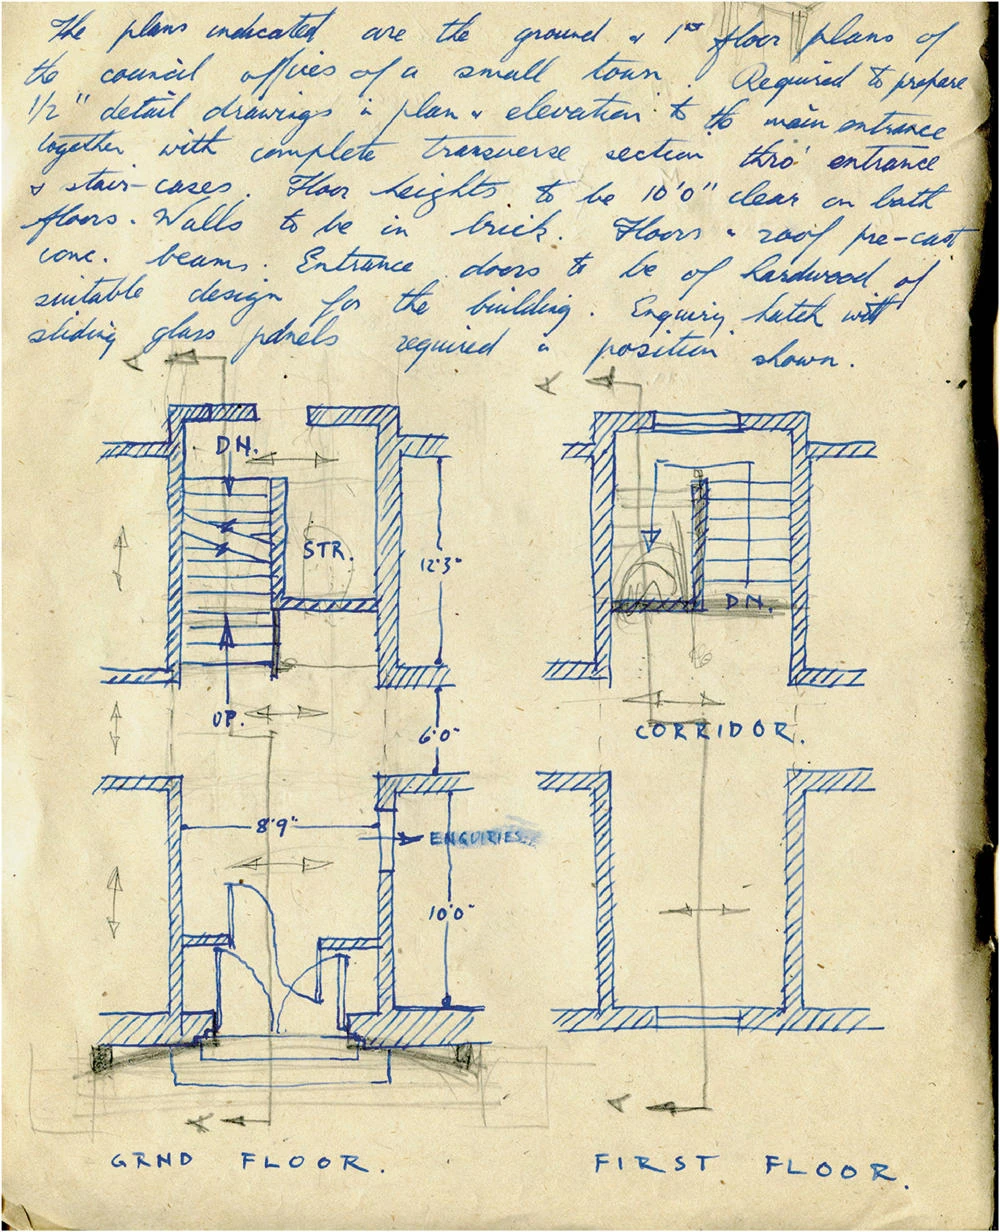 The plans indicated are the ground & 1st floor plans of
the council offices of a small town. Required to prepare
1/2" detail drawings in plan & elevation to the main entrance
together with complete transverse section thro' entrance
& stair-cases. Floor heights to be 10'0" clear on both
floors. Walls to be in brick. Floors & roof pre-cast
conc. beams. Entrance doors to be of hardwood of
suitable design for the building. Enquiry hatch with
sliding glass panels required in position shown.
A A
DN.
STR.
12'3"
DN.
UP.
6'0"
CORRIDOR.
8'9"
ENQUIRIES.
10'0"
A A
GRND FLOOR.
FIRST FLOOR.